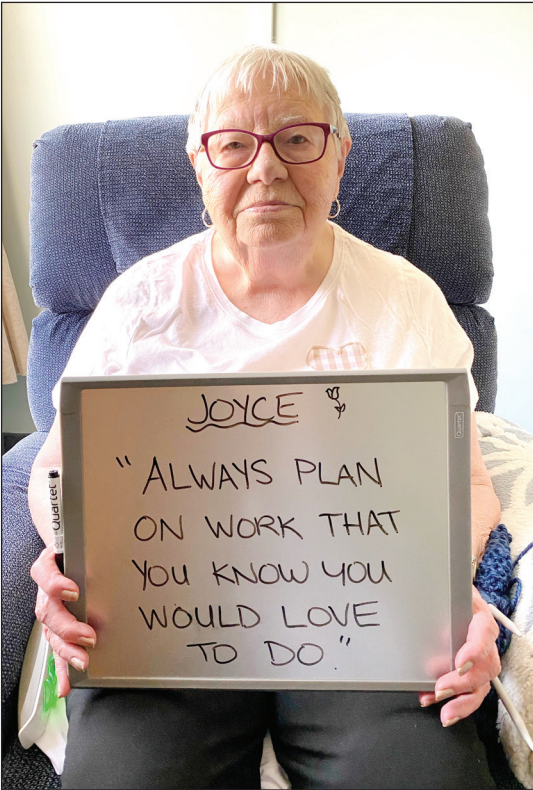 JOYCE
"ALWAYS PLAN
ON WORK THAT
YOU KNOW YOU
WOULD LOVE
TO DO."
Quartet
Quartet